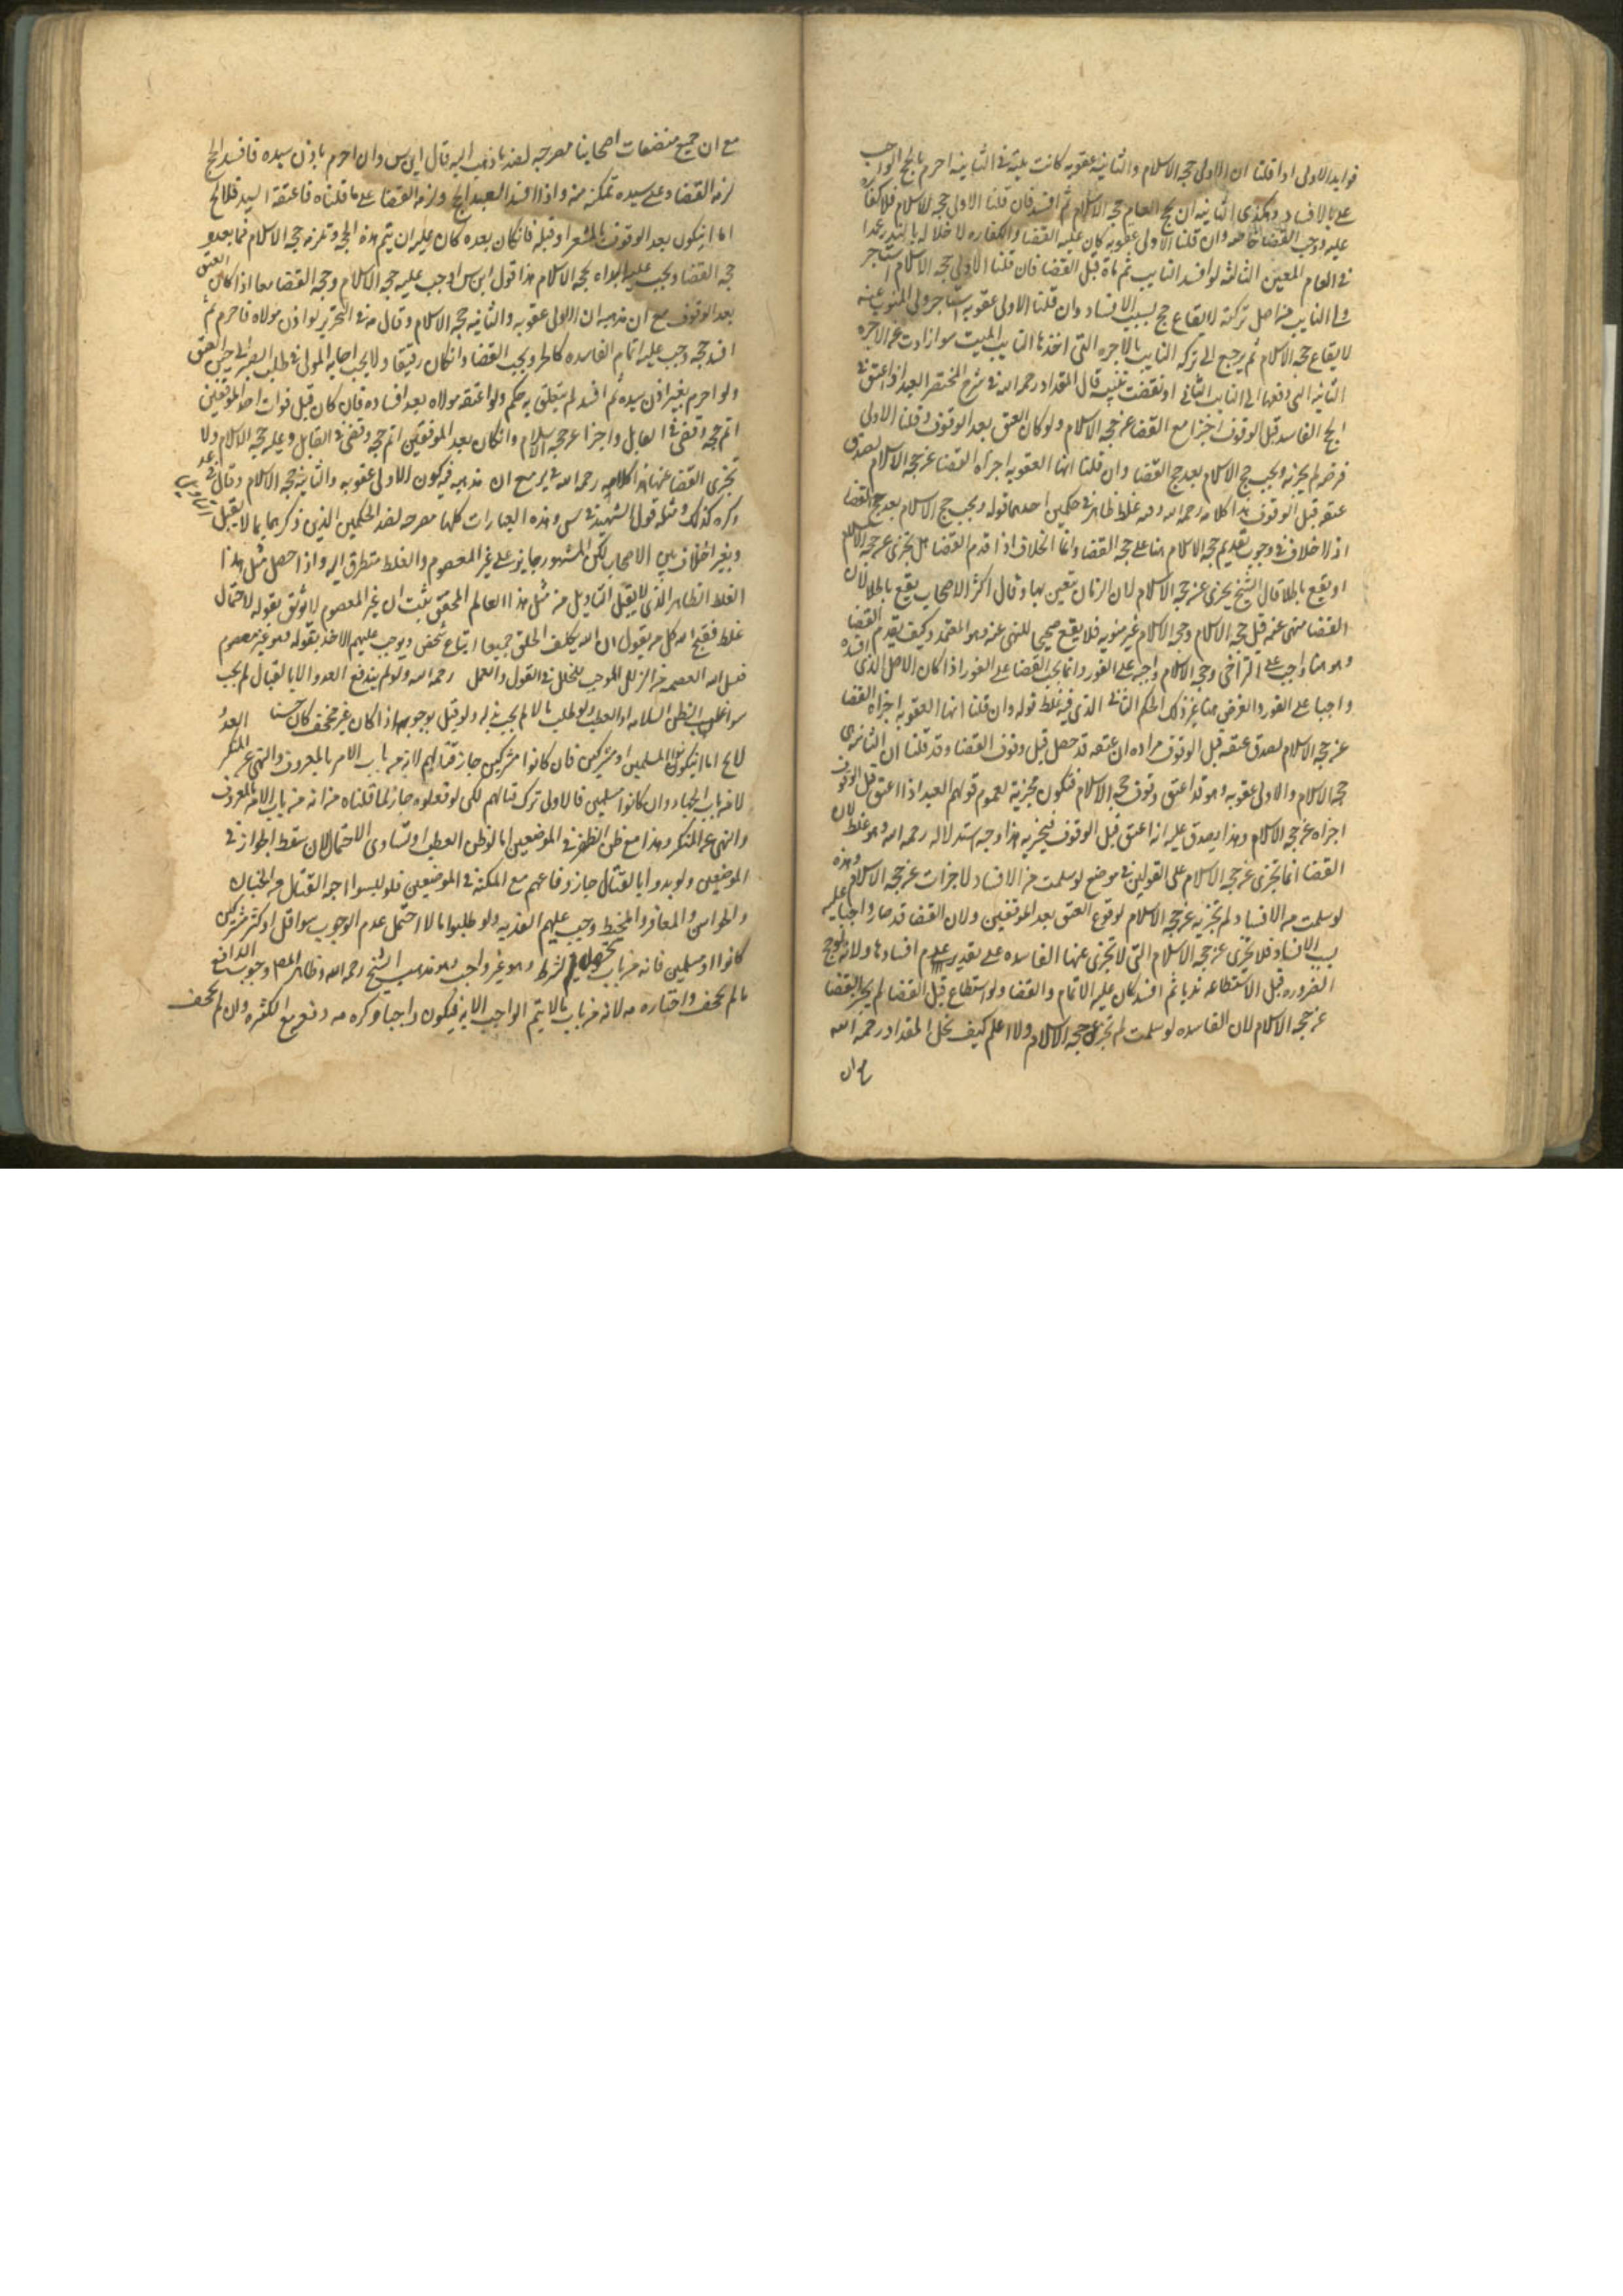 فوايد الاولى اذا قلنا ان الاولى حجه الاسلام والثانيه عقوبه كانت نيته في الثانيه احرم بالحج الواجب
على بالافساد وهكذى الثانيه ان يحج العام حجه الاسلام ثم افسد فان قلنا الاولى حجه الاسلام فلا كفاره
عليه ووجب القضا خاصه وان قلنا الاولى عقوبه كان عليه القضا والكفاره لاخلاله بالنذر عمدا
في العام المعين الثالثه لو افسد النايب ثم مات قبل القضا فان قلنا الاولى حجه الاسلام استاجر
ولي النايب من اصل تركته لايقاع حج بسبب الافساد وان قلنا الاولى عقوبه استاجر ولي المنوب عنه
لايقاع حجه الاسلام ثم يرجع الى تركه النايب بالاجره التي اخذها النايب الميت سوا زادت عن الاجره
الثانيه التي دفعها الى النايب الثاني او نقصت تنبيه قال المقداد رحمه الله في شرح المختصر العبد اذا اعتق في
الحج الفاسد قبل الوقوف اجزا مع القضا عن حجه الاسلام ولو كان العتق بعد الوقوف وقلنا الاولى
فرضه لم يجزيه ويجب حج الاسلام بعد حج القضا وان قلنا انها العقوبه اجزاه القضا عن حجه الاسلام لصدق
عتقه قبل الوقوف هذا كلامه رحمه الله وهو غلط ظاهر في حكمين احدهما قوله ويجب حج الاسلام بعد حج القضا
اذ لا خلاف في وجوب تقديم حجه الاسلام هنا على حجه القضا وانما الخلاف اذا قدم القضا هل يجزى عن حجه الاسلام
او يقع باطلا قال الشيخ يجزى عن حجه الاسلام لان الزمان يتعين بها وقال اكثر الاصحاب يقع باطلا لان
القضا منهى عنه قبل حجه الاسلام وحجه الاسلام غير منويه فلا يقع صحيحا للنهى عنه وهو المعتمد وكيف يقدم القضا
وهو هنا واجب على التراخى وحجه الاسلام واجبه على الفور وانما يجب القضا على الفور اذا كان الاصل الذى افسده
واجبا على الفور والفرض هنا غير ذلك الحكم الثاني الذى فيه غلط قوله وان قلنا انها العقوبه اجزاه القضا
عن حجه الاسلام لصدق عتقه قبل الوقوف مراده ان عتقه قد حصل قبل وقوف القضا وقد قلنا ان الثانيه هى
حجه الاسلام والاولى عقوبه وهو قد اعتق وقوف حجه الاسلام فتكون مجزيه لعموم قولهم العبد اذا اعتق قبل الوقوف
اجزاه عن حجه الاسلام وهذا يصدق عليه انه اعتق قبل الوقوف فيجزيه هذا وجه استدلاله رحمه الله وهو غلط لان
القضا انما يجزى عن حجه الاسلام على القولين في موضع لو سلمت من الافساد لاجزات عن حجه الاسلام وهذه
لو سلمت من الافساد لم تجزيه عن حجه الاسلام لوقوع العتق بعد الموقفين ولان القضا قد صار واجبا عليه
بسبب الافساد فلا يجزى عن حجه الاسلام التى لا تجزى عنها الفاسده على تقدير عدم افسادها ولانه لو حج
الضروره قبل الاستطاعه ندبا ثم افسد كان عليه الاتمام والقضا ولو استطاع قبل القضا لم يجز القضا
عن حجه الاسلام لان الفاسده لو سلمت لم تجز عن حجه الاسلام ولا اعلم كيف تخيل المقداد رحمه الله
مع ان
مع ان جميع مصنفات اصحابنا مصرحه بضد ما ذهب اليه قال ابن س وان احرم باذن سيده فافسد الحج
لزمه القضا وعلى سيده تمكينه منه واذا افسد العبد الحج ولزمه القضا على ما قلناه فاعتقه السيد فلا يخ
اما ان يكون بعد الوقوف بالمشعر او قبله فان كان بعده كان عليه ان يتم هذه الحجه وتلزمه حجه الاسلام فيما بعد و
حجه القضا ويجب عليه البداه بحجه الاسلام هذا قول ابن س اوجب عليه حجه الاسلام وحجه القضا معا اذا كان العتق
بعد الوقوف مع ان مذهبه ان الاولى عقوبه والثانيه حجه الاسلام وقال في التحرير لو اذن مولاه فاحرم ثم
افسد حجه وجب عليه اتمام الفاسده كالحر ويجب القضا وان كان رقيقا ولا يجب اجابه المولى في طلب الصبر الى حين العتق
ولو احرم بغير اذن سيده ثم افسد لم يتعلق به حكم ولو اعتقه مولاه بعد افساده فان كان قبل فوات احد الموقفين
اتم حجه وقضى في القابل واجزا عن حجه الاسلام وان كان بعد الموقفين اتم حجه وقضى في القابل وعليه حجه الاسلام ولا
تجزى القضا عنها هذا كلامه رحمه الله في ير مع ان مذهبه فيه كون الاولى عقوبه والثانيه حجه الاسلام وقال في عد
وكره كذلك ومثله قول الشهيد في س وهذه العبارات كلها مصرحه بضد الحكمين الذين ذكرهما بما لا يقبل
وبغير اختلاف بين الاصحاب لكن السهو جايز على غير المعصوم والغلط متطرق اليه واذا حصل مثل هذا
الغلط الظاهر الذى لا يقبل التاويل من مثل هذا العالم المحقق يثبت ان غير المعصوم لا يوثق بقوله لاحتمال
غلط فقبح الله كل من يقول ان الله يكلف الخلق جميعا اتباع شخص ويوجب عليهم الاخذ بقوله وهو غير معصوم
فنسل الله العصمه من الزلل الموجب للخلل في القول والعمل رحمه الله ولو لم يندفع العدو الا بالقتال لم يجب
سوا غلب الظن السلامه او العطب ولو طلب مالا لم يجب بذله ولو قيل بوجوبه اذا كان غير مجحف كان حسنا العدو
لا يخ اما ان يكونوا مسلمين او مشركين فان كانوا مشركين جاز قتالهم لانه من باب الامر بالمعروف والنهى عن المنكر
لا من باب الجهاد وان كانوا مسلمين فالاولى ترك قتالهم لكن لو فعلوه جاز لما قلناه من انه من باب الامر بالمعروف
والنهى عن المنكر وهذا مع ظن الظفر في الموضعين اما لو ظن العطب او تساوى الاحتمالان سقط الجواز في
الموضعين ولو بدوا بالقتال جاز دفاعهم مع المكنه في الموضعين فلو لبسوا اجود القتال من الجنان
والجواشن والمغافر والمخيط وجب عليهم الفديه ولو طلبوا مالا احتمل عدم الوجوب سوا قل او كثر مشركين
كانوا او مسلمين فانه من باب تحصيل الشرط وهو غير واجب وهو مذهب الشيخ رحمه الله وظاهر المص وجوب الدافع
ما لم يجحف واختاره مه لانه من باب ما لا يتم الواجب الا به فيكون واجبا وكره مه دفع مع الكثره وان لم يجحف